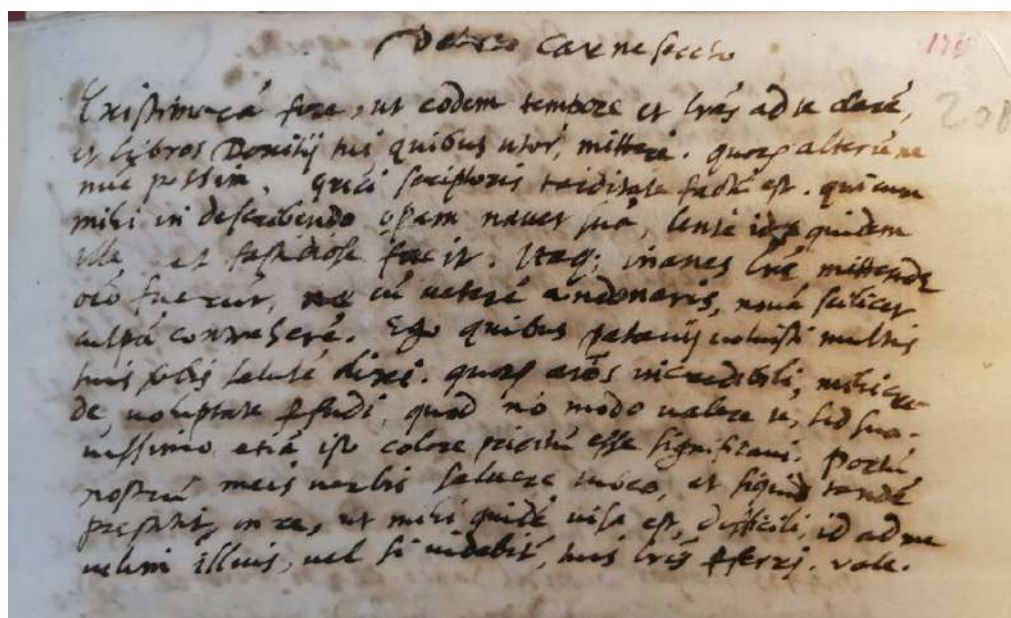 Petro Carnesecho
175
208
Existimarā fore, ut eodem tempore et lrās ad te darē,
et libros Donitij tui quibus utor, mitterē. quorꝫ alterū ne
nūc possim, greci scriptoris tarditate factū est. qui cum
mihi in describendo opam navet suā, lente id quidem
ille et fastidiose facit. Itaqꝫ inanes lrē mittende
nō fuerūt, ne cū veterē condonaris, novā scilicet
culpā contraherē. Ego quibus patavij voluisti multis
tuis vbis salutē dixi. quorꝫ aīos incredibili, mihi cre-
de, voluptate ꝑfudi, quod nō modo valere te, sed sua-
vissimo etiā isto colore esse significavi.
nostrū meis verbis salvere iubeo, et siquid tandē
prestitit, in re, ut mihi quidē visa est, difficili, id ad me
velim illius, vel si videbitʳ, tuis lris ꝑferri. vale.